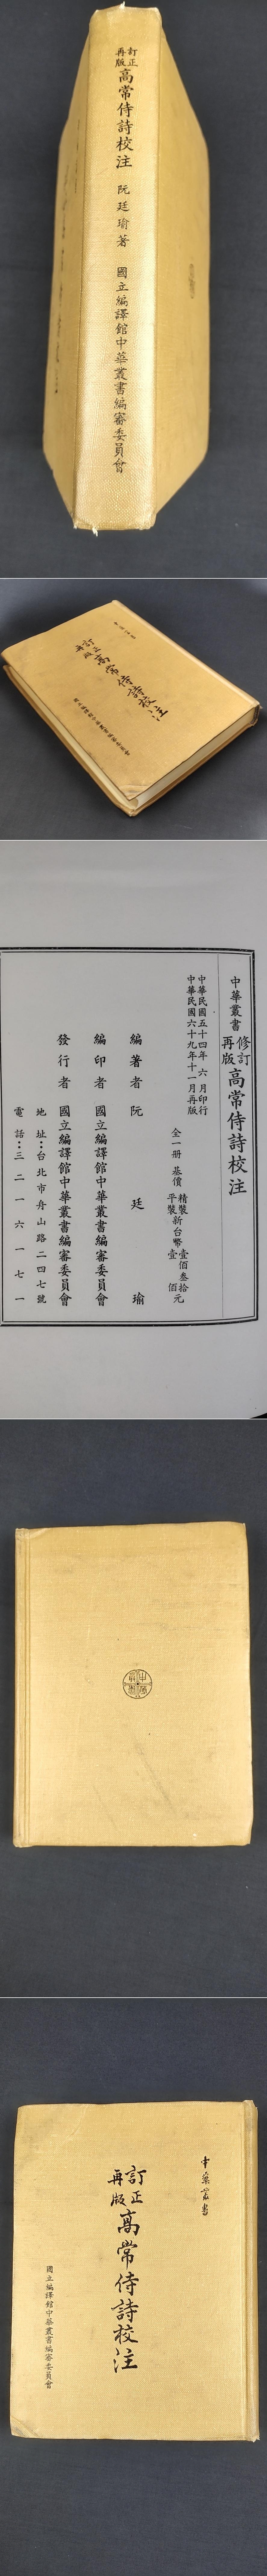 訂正
再版
高常侍詩校注
阮廷瑜著
國立編譯館中華叢書編審委員會
訂正
再版
高常侍詩校注
中華叢書
修訂
再版
高常侍詩校注
中華民國五十四年六月印行
中華民國六十九年十一月再版
全一册
基價
精裝新台幣壹佰叁拾元
平裝新台幣壹佰元
編著者 阮廷瑜
編印者 國立編譯館中華叢書編審委員會
發行者 國立編譯館中華叢書編審委員會
地址：台北市舟山路二四七號
電話：三二一六一七一
中華叢書
訂正
再版
高常侍詩校注
國立編譯館中華叢書編審委員會